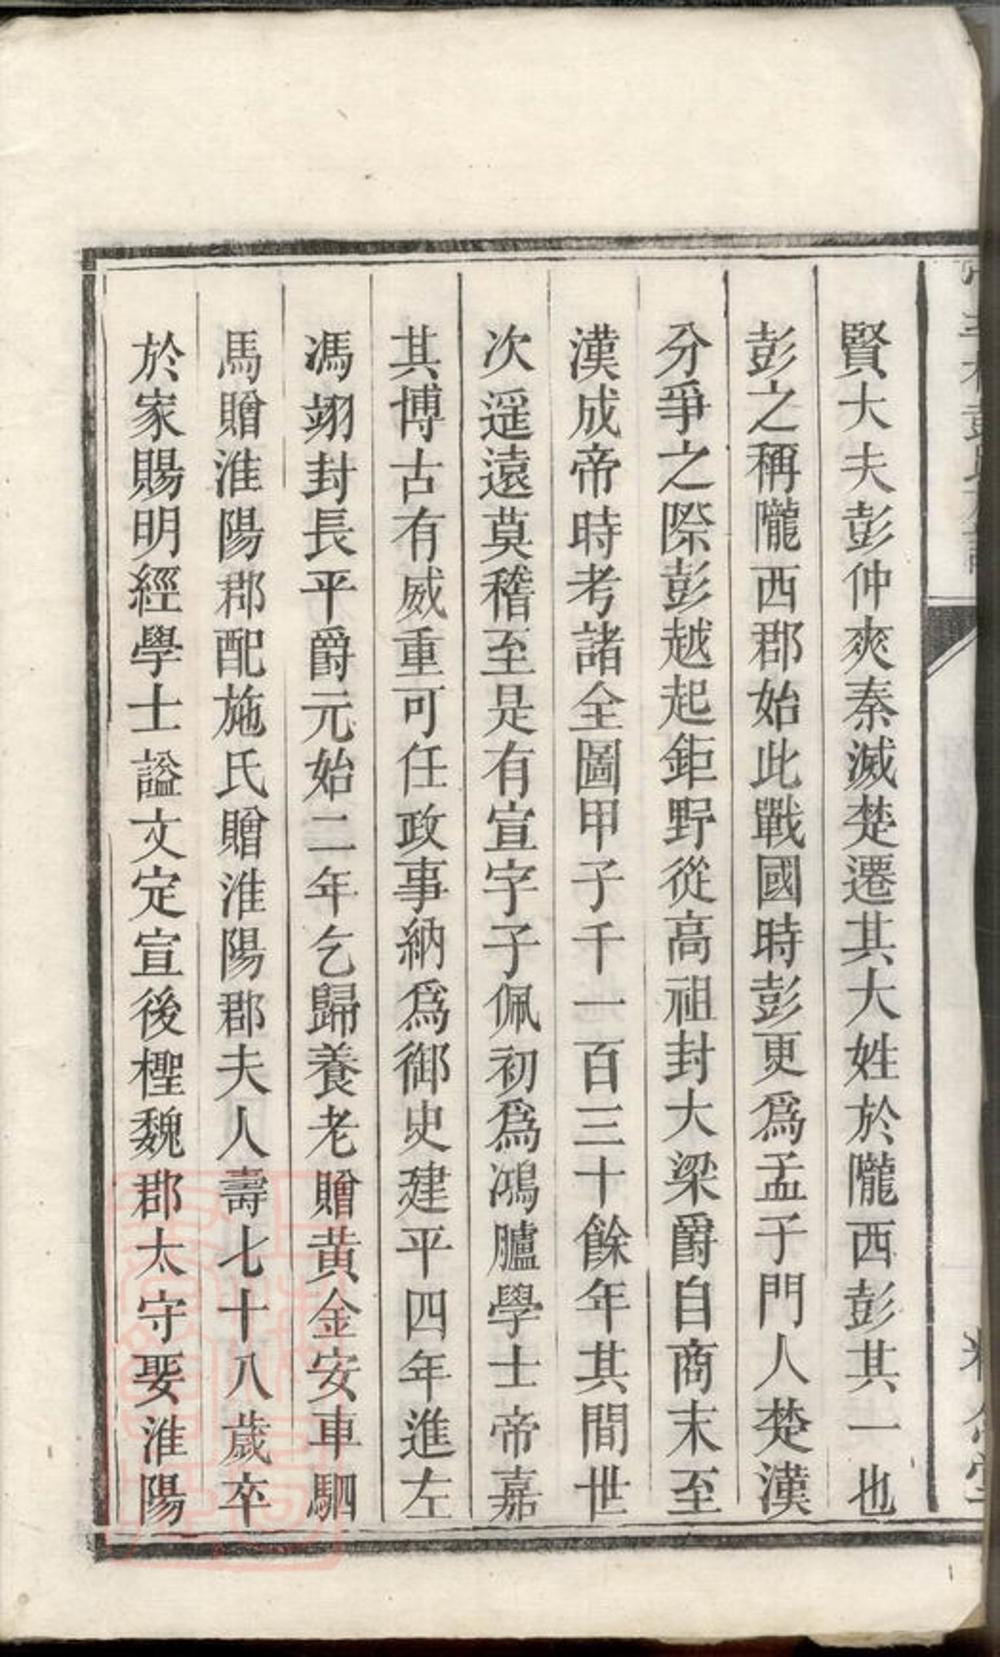 賢大夫彭仲爽秦滅楚遷其大姓於隴西彭其一也
彭之稱隴西郡始此戰國時彭更爲孟子門人楚漢
分爭之際彭越起鉅野從高祖封大梁爵自商末至
漢成帝時考諸全圖甲子千一百三十餘年其間世
次遥遠莫稽至是有宣字子佩初爲鴻臚學士帝嘉
其博古有威重可任政事納爲御史建平四年進左
馮翊封長平爵元始二年乞歸養老贈黃金安車駟
馬贈淮陽郡配施氏贈淮陽郡夫人壽七十八歲卒
於家賜明經學士謚文定宣後檉魏郡太守娶淮陽